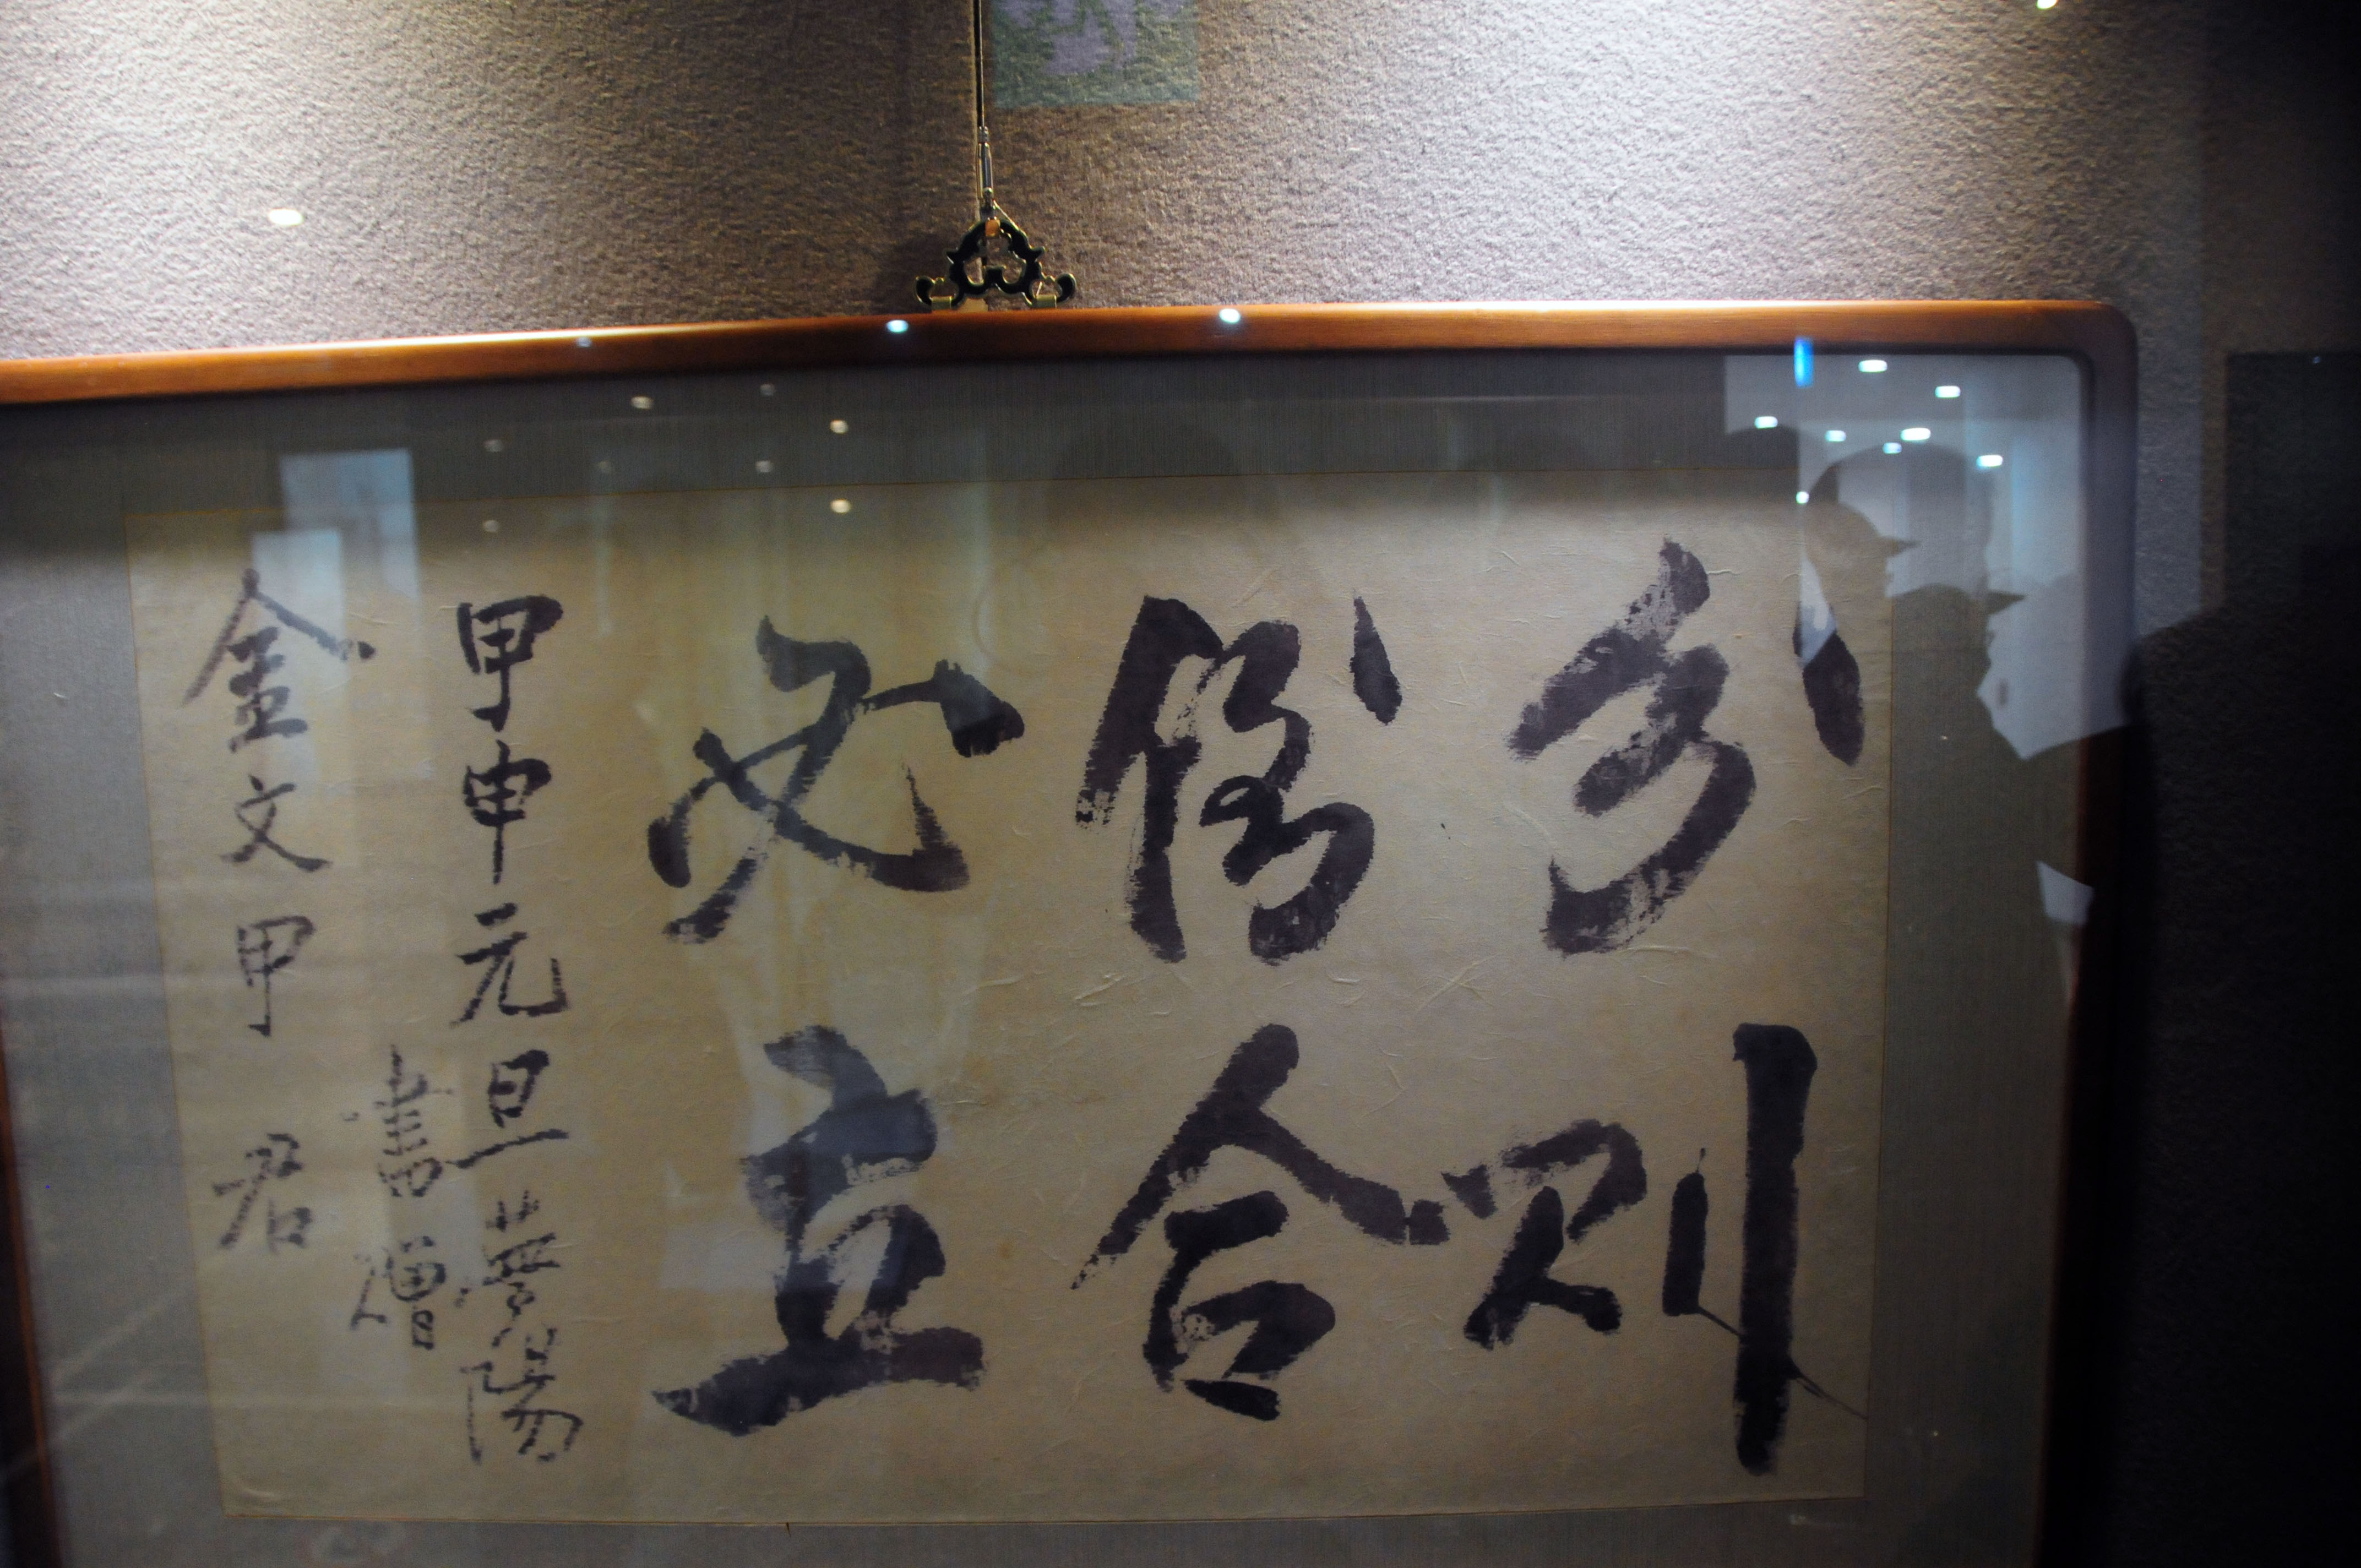 分則
倒合
必立
甲申元旦夢陽
書贈
金文甲 君